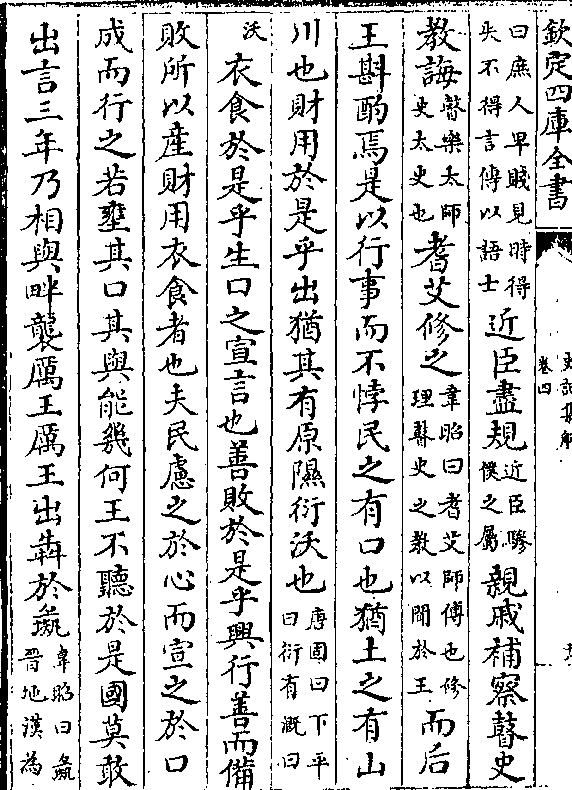 欽定四庫全書
史記集解
卷四
曰庶人卑賤見時得
失不得言傳以語士
近臣盡規
近臣驂
僕之屬
親戚補察瞽史
教誨
瞽樂太師
史太史也
耆艾修之
韋昭曰耆艾師傅也修
理瞽史之教以聞於王
而后
王斟酌焉是以行事而不悖民之有口也猶土之有山
川也財用於是乎出猶其有原隰衍沃也
唐固曰下平
曰衍有溉曰
沃
衣食於是乎生口之宣言也善敗於是乎興行善而備
敗所以産財用衣食者也夫民慮之於心而宣之於口
成而行之若壅其口其與能幾何王不聽於是國莫敢
出言三年乃相與畔襲厲王厲王出犇於彘
韋昭曰彘
晉地漢為